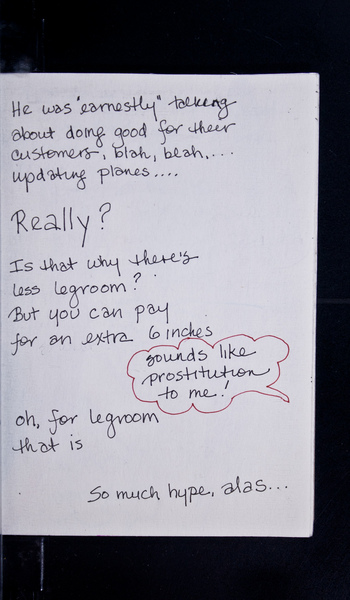 He was "earnestly" talking
about doing good for their
customers, blah, blah,...
updating planes....
Really?
Is that why there's
less legroom?
But you can pay
for an extra 6 inches
sounds like
prostitution
to me!
oh, for legroom
that is
So much hype, alas...